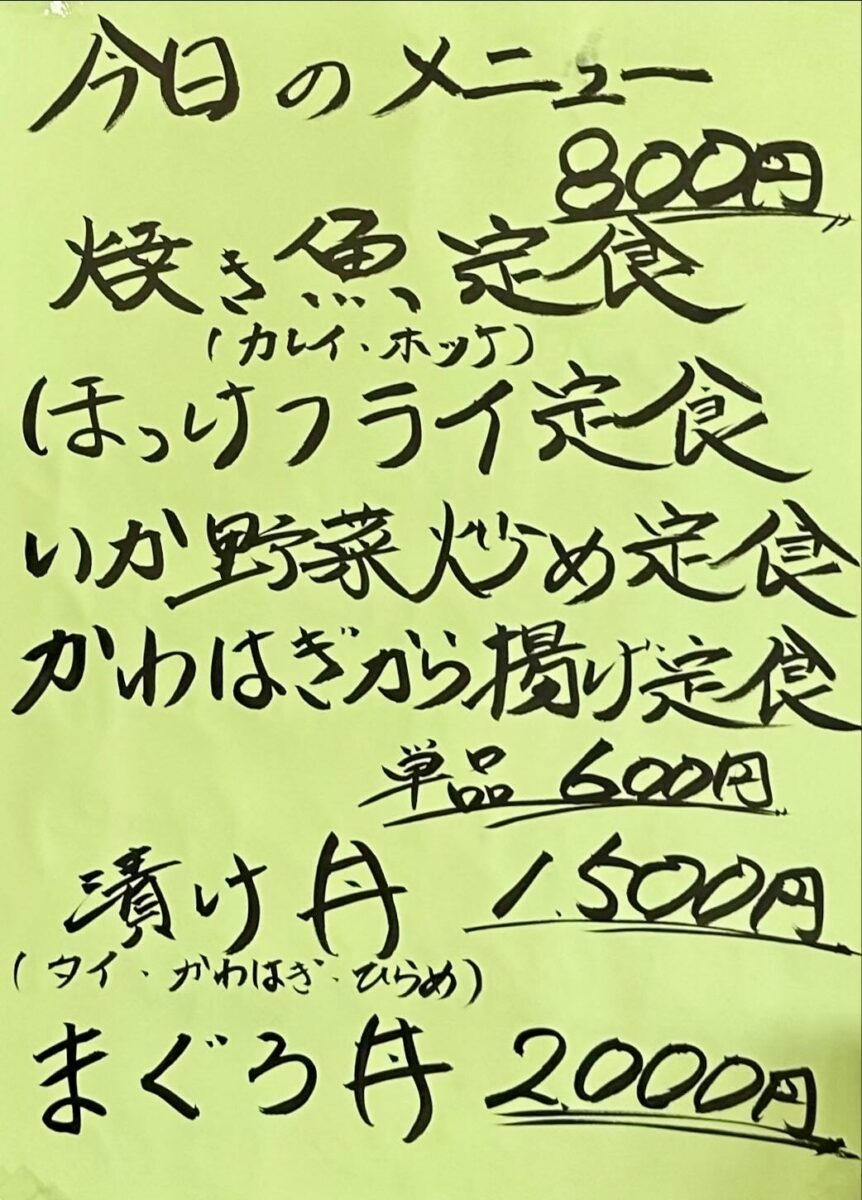 今日のメニュー
800円
焼き魚定食
(カレイ・ホッケ)
ほっけフライ定食
いか野菜炒め定食
かわはぎから揚げ定食
単品 600円
漬け丼 1,500円
(タイ・かわはぎ・ひらめ)
まぐろ丼 2,000円